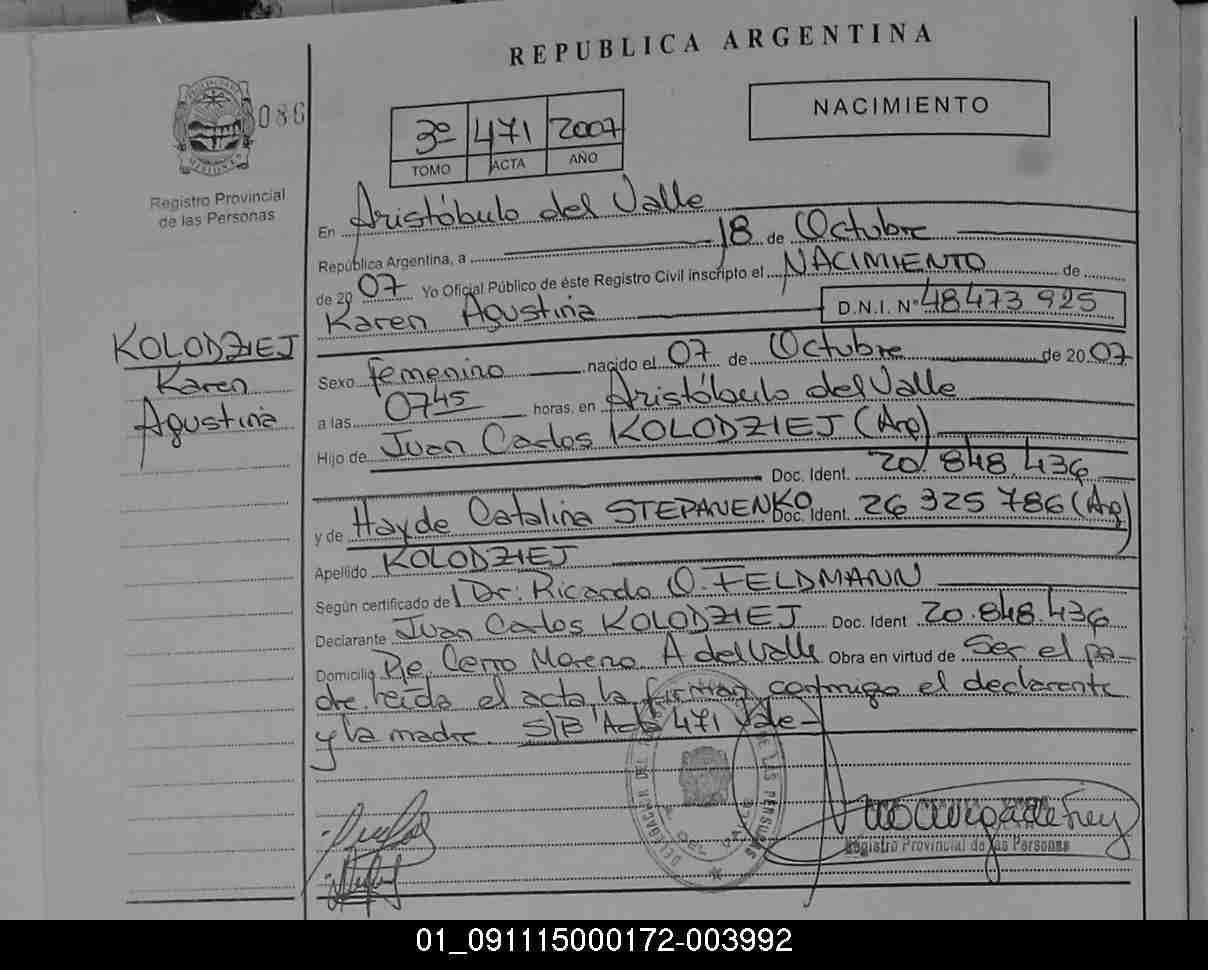 REPUBLICA ARGENTINA
NACIMIENTO
086
3º 471 2007
TOMO ACTA AÑO
Registro Provincial
de las Personas
En Aristóbulo del Valle
República Argentina, a 18 de Octubre
de 2007 Yo Oficial Público de éste Registro Civil inscripto el NACIMIENTO de
Karen Agustina D.N.I. Nº 48473 925
KOLODZIEJ
Karen
Agustina
Sexo femenino nacido el 07 de Octubre de 2007
a las 0745 horas, en Aristóbulo del Valle
Hijo de Juan Carlos KOLODZIEJ (Arg)
Doc. Ident. 20.848.436
y de Hayde Catalina STEPANENKO Doc. Ident. 26 325 786 (Arg)
Apellido KOLODZIEJ
Según certificado del Dr. Ricardo O. FELDMANN
Declarante Juan Carlos KOLODZIEJ Doc. Ident 20.848.436
Domicilio Pje. Cerro Moreno A del Valle Obra en virtud de Ser el pa-
dre. leída el acta la firman conmigo el declarante
y la madre. S/B Acta 471 Vale
DELEGACION DEL DE LAS PERSONAS
Registro Provincial de las Personas
01_091115000172-003992